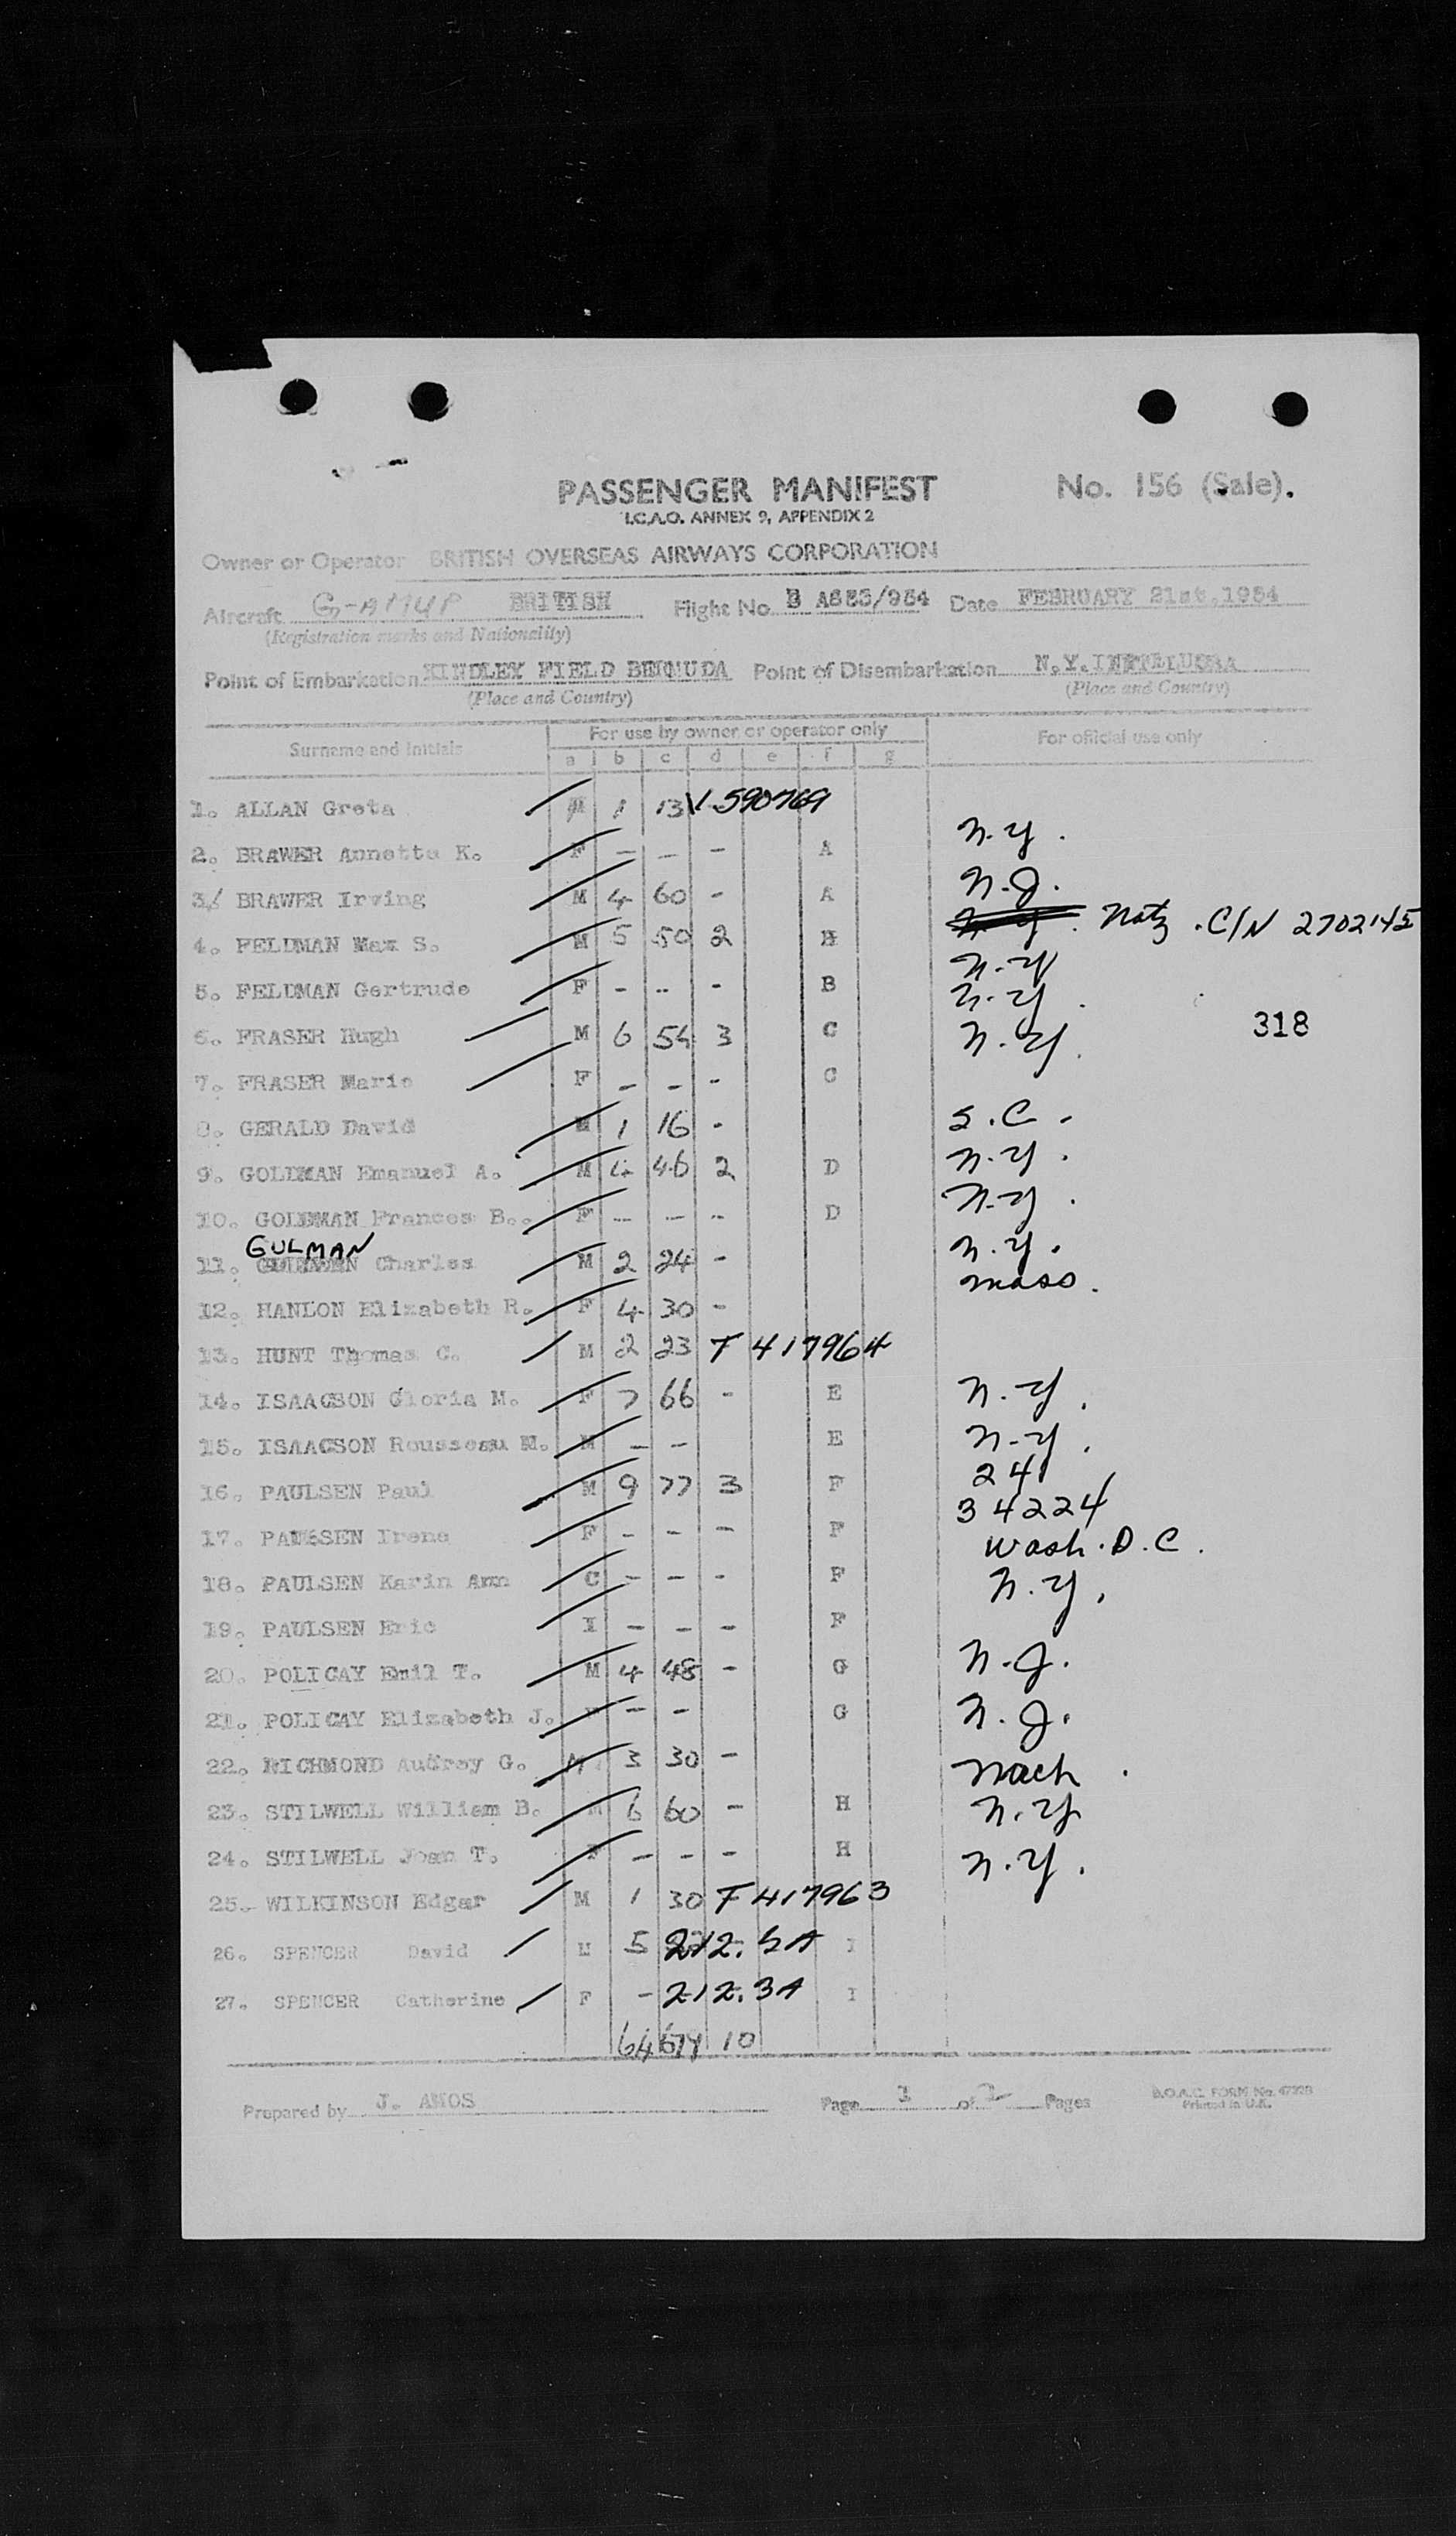 PASSENGER MANIFEST No. 156 (Sale).
I.C.A.O. ANNEX 9, APPENDIX 2
Owner or Operator BRITISH OVERSEAS AIRWAYS CORPORATION
Aircraft BRITISH Flight No. B Date FEBRUARY 21st, 1954
(Registration marks and Nationality)
Point of Embarkation KINDLEY FIELD BERMUDA Point of Disembarkation N.Y.
(Place and Country) (Place and Country)
Surname and Initials For use by owner or operator only For official use only
a b c d e f g
1. ALLAN Greta 1 13 V.590769
2. BRAWER Annette K. F - - - A N.Y.
3/ BRAWER Irving M 4 60 - A N.J.
4. FELDMAN Max S. M 5 50 2 N.Y. Natz. C/N 2702145
5. FELDMAN Gertrude F - - - B N.Y
N.Y.
6. FRASER Hugh M 6 54 3 C N.Y. 318
7. FRASER Marie F - - - C
8. GERALD David M 1 16 - S.C.
9. GOLDMAN Emanuel A. M 4 46 2 D N.Y.
10. GOLDMAN Frances B.. F - - - D N.Y.
GULMAN
11. Charles M 2 24 - N.Y.
12. HANLON Elizabeth R. F 4 30 - Mass.
13. HUNT Thomas C. M 2 23 T 417964
14. ISAACSON Gloria M. F 7 66 - E N.Y.
15. ISAACSON Rousseau M. M - - E N.Y.
16. PAULSEN Paul M 9 77 3 F 241
17. PAULSEN Irene F - - - F 34224
Wash. D.C.
18. PAULSEN Karin Ann C - - - F N.Y.
19. PAULSEN Eric I - - - F
20. POLICAY Emil T. M 4 48 - G N.J.
21. POLICAY Elizabeth J. F - - G N.J.
22. RICHMOND Audrey G. 3 30 -
23. STILWELL William B. M 6 60 - H N.Y
24. STILWELL Joan T. F - - - H N.Y.
25. WILKINSON Edgar M 1 30 T 417963
26. SPENCER David M 5 212. I
27. SPENCER Catherine F - 212.3A I
64 10
Prepared by J. AMOS Page 1 of Pages B.O.A.C. FORM No.
Printed in U.K.